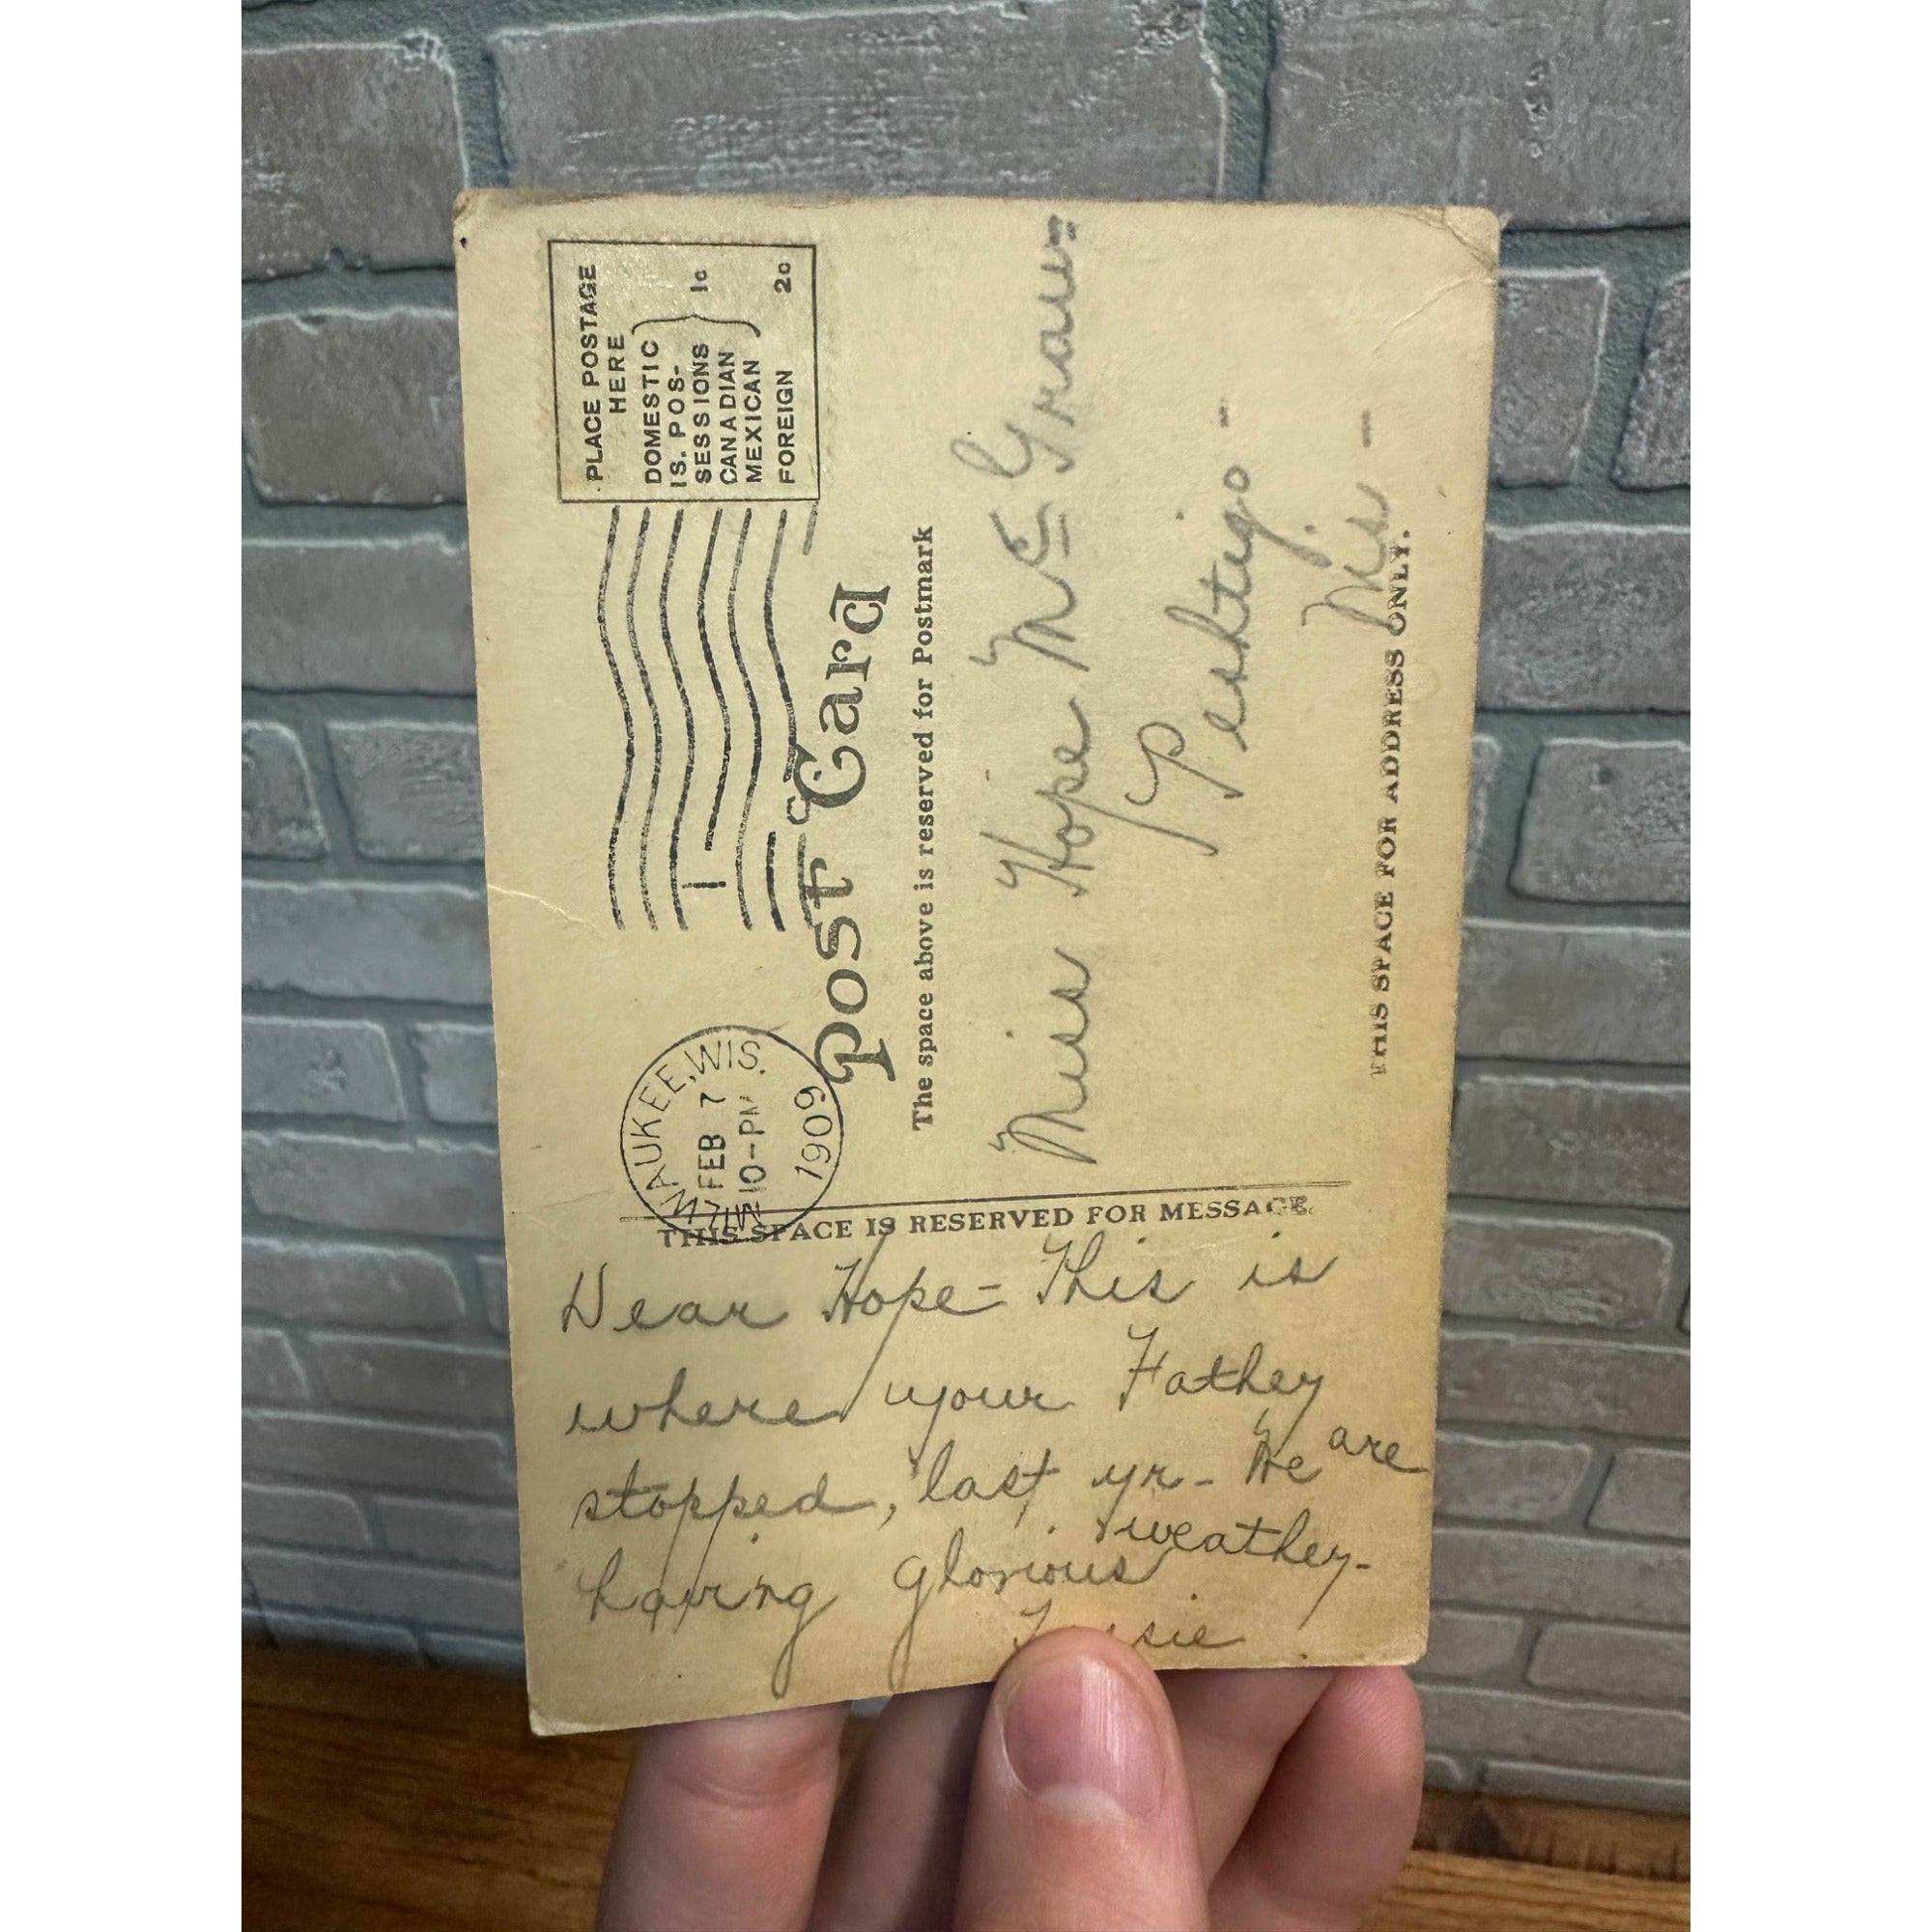 PLACE POSTAGE
HERE
DOMESTIC
IS. POS-
SESSIONS
CANADIAN
MEXICAN
1c
FOREIGN 2c
MILWAUKEE, WIS.
FEB 7
10-PM
1909
1
Post Card
The space above is reserved for Postmark
Miss Hope Mc Graw
Peshtigo -
Wis -
THIS SPACE FOR ADDRESS ONLY.
THIS SPACE IS RESERVED FOR MESSAGE.
Dear Hope = This is
where your Father
stopped, last yr - We are
having glorious weather -